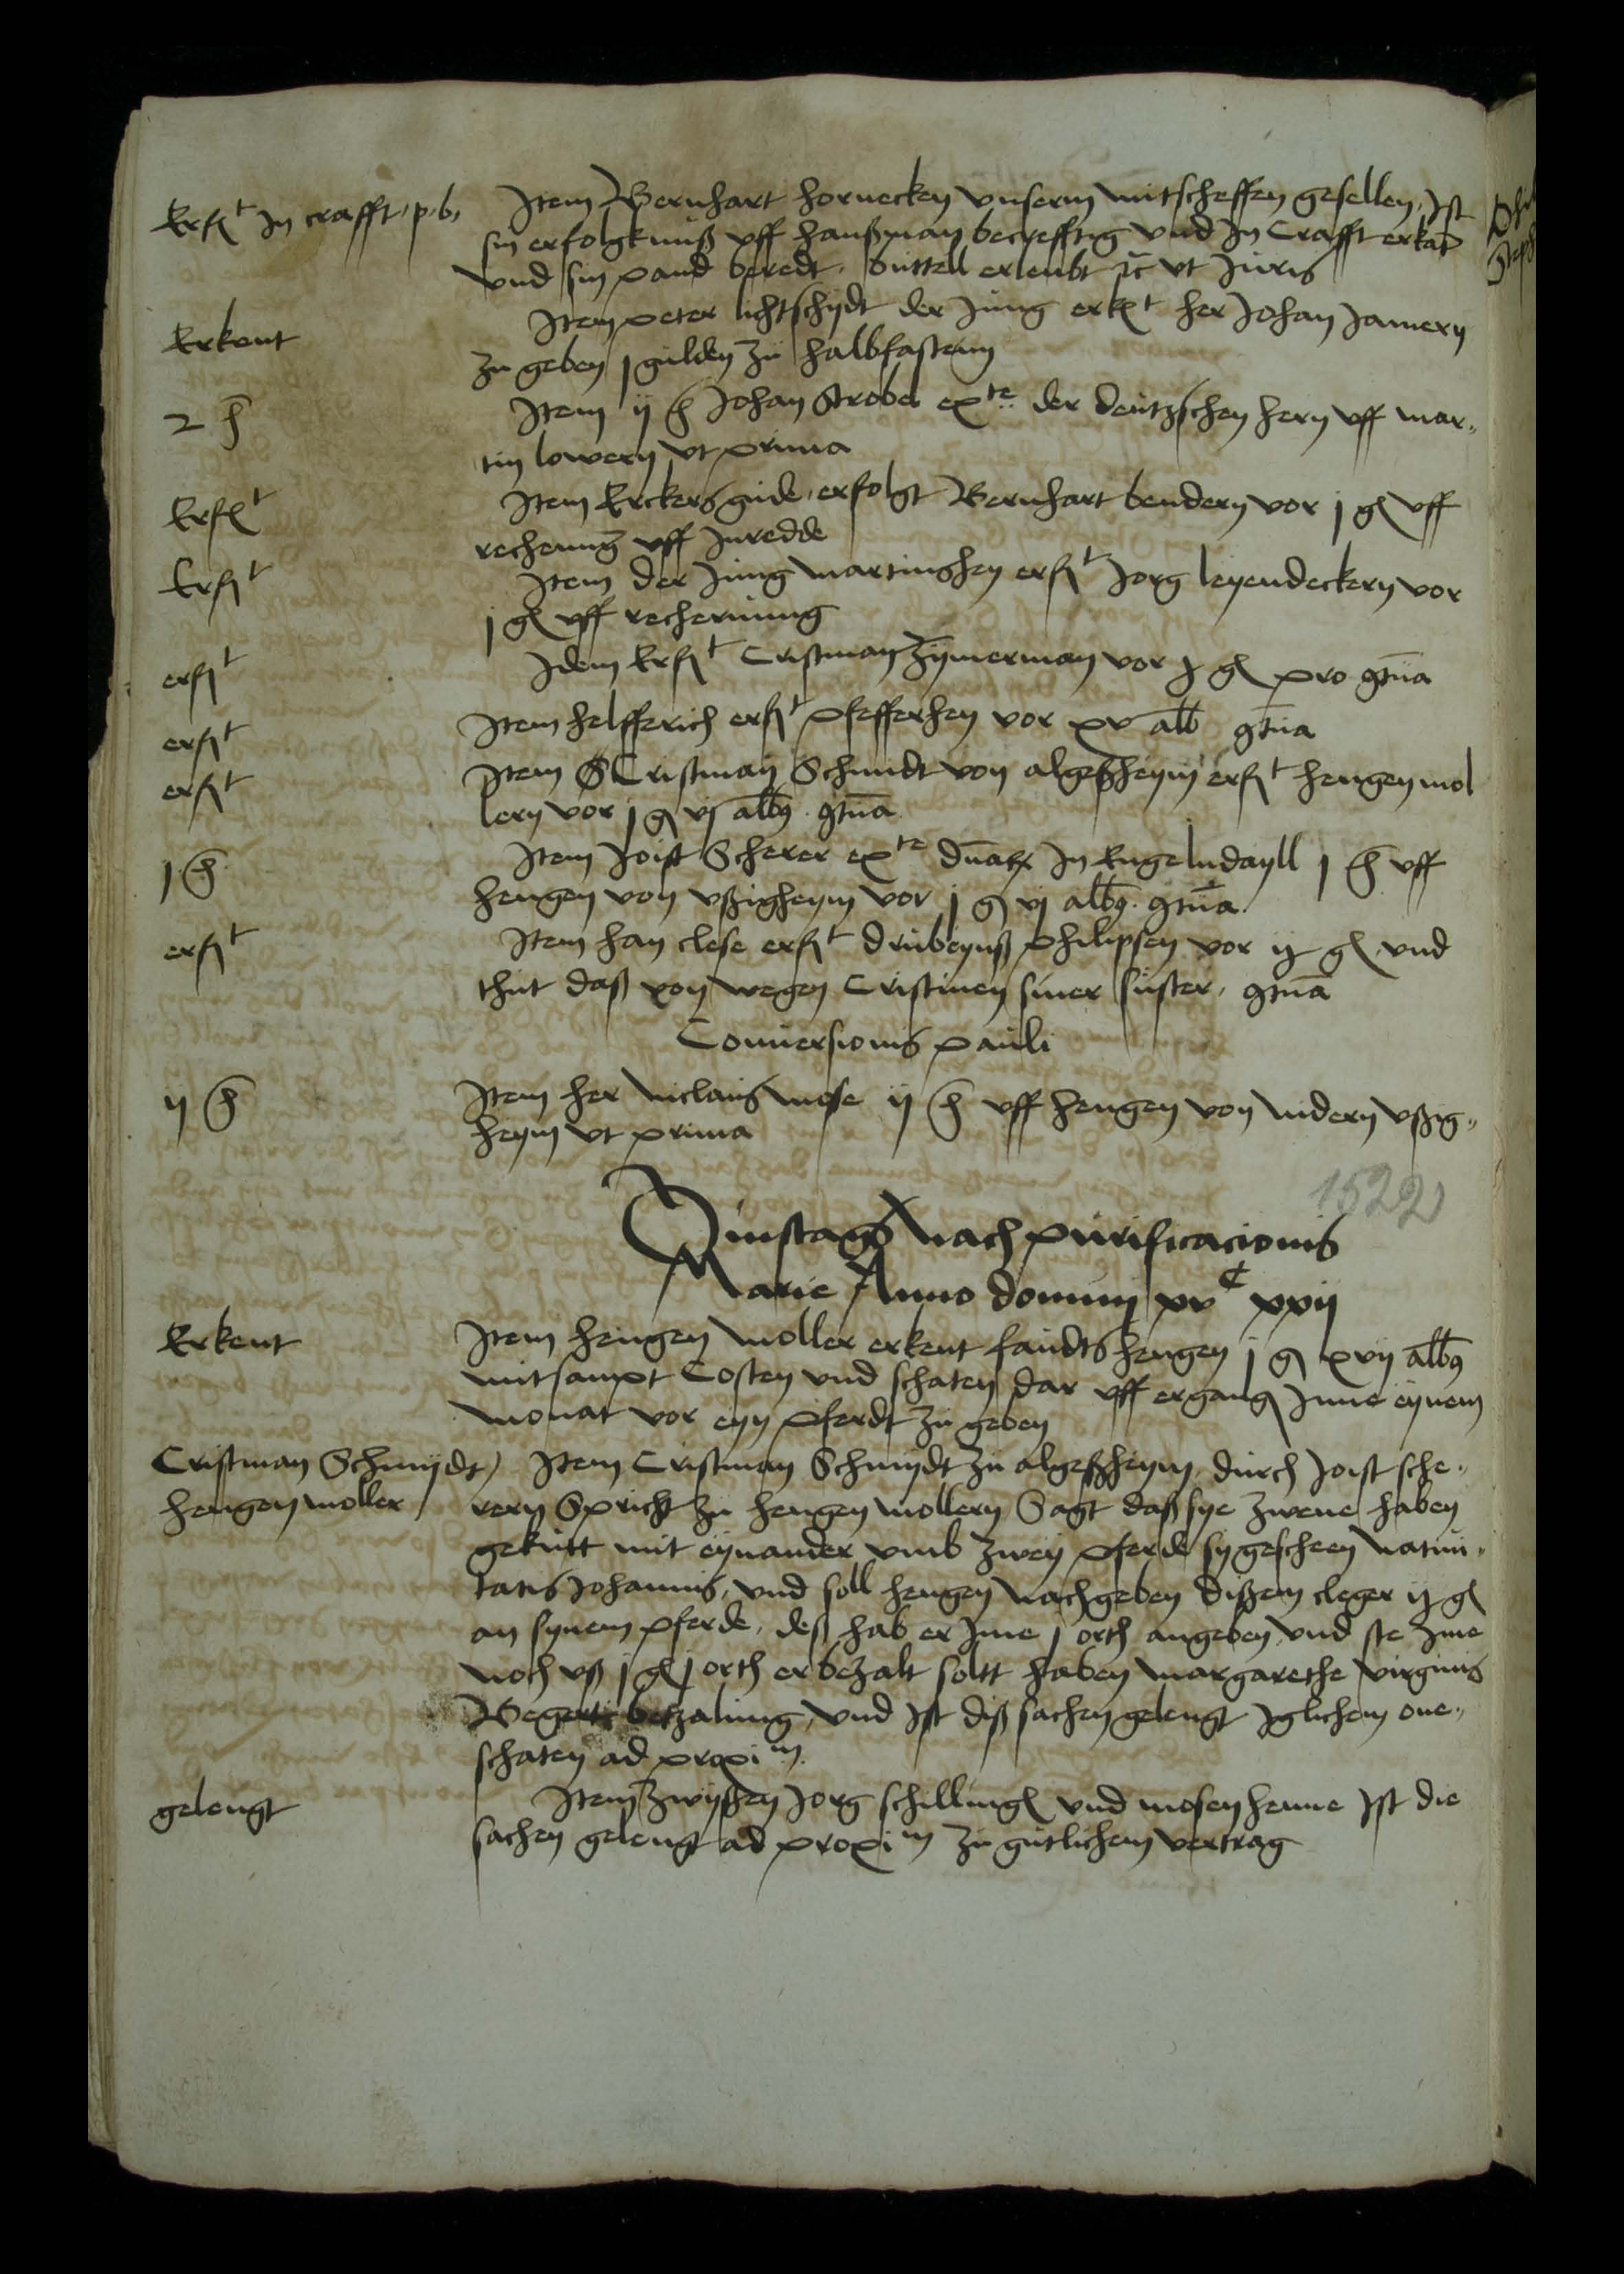 Erf<sup>t</sup> In crafft p. b.
Item Bernhart hornecken vnserm mitscheffen gesellen, Ist
sin erfolgkniß vff hanßman becrefftig vnd In Crafft erkant
vnd sin pand beredt, buttell erleubt ut Juris
Erkent
Item peter lichtschydt der Jung erk<sup>t</sup> her Johan Jamern
zu geben j gulden zu halbfastenn
2 h
Item ij h Johan Strobel ex<sup>te</sup> der deutzschen hern vff mar„
tin lowern vt prima
Erf<sup>t</sup>
Item Erckers gude, erfolgt Bernhart bendern vor j gl vff
rechenung vff Inredde
Erf<sup>t</sup>
Item der Jung martinshen erf<sup>t</sup> Jorg leyendeckern vor
j gl vff rechenung
erf<sup>t</sup>
Idem Erf<sup>t</sup> Cristman Zymerman vor j gl pro gtua
erf<sup>t</sup>
Item helfferich erf<sup>t</sup> pfefferhen vor xv alb gtua
erf<sup>t</sup>
Item Cristman Schmidt von algeßheym erf<sup>t</sup> hengen mol
lern vor j g vj alb9 gtua
j h
Item Joist Scherer ex<sup>te</sup> dnar In Engelndayll j h vff
hengen von vßigheym vor j g vj alb9 gtua
erf<sup>t</sup>
Item han clese erf<sup>t</sup> drubeynß philipsen vor ij gl vnd
thut daß von wegen Cristinen siner suster, gtua
Conuersionis pauli
ij h
Item her niclaus mose ij h vff hengen von nidern vßig„
heym vt prima
1522
Dinstags nach purificacionis
Marie Anno domini xv<sup>c</sup> xxij
Erkent
Item hengen moller erkent faudts hengen j g xvij alb9
mitsampt Costen vnd schaten dar vff ergang Inne eynem
monat vor eyn pferdt zu geben
Cristman Schmydt
hengen moller
Item Cristman Schmydt zu algeßheym durch Joist sche„
rern Spricht zu hengen mollern Sagt daß sye zwene haben
gekutt mit eynander vmb zwey pferde sy gescheen natiui„
tatis Johannis, vnd soll hengen nachgeben dißem cleger ij gl
an synem pferde, deß hab er Ime j orth angeben vnd ste Ime
noch vß j gl j orth er bezalt soltt haben margarethe virginis
Begert betzalung, vnd Ist diß sachen gelengt Iglichem one„
schaten ad proxi<sup>m</sup>
gelengt
Item zwyßen Jorg schilling vnd mosen henne Ist die
sachen gelengt ad proxi<sup>m</sup> zu gutlichem vertrag